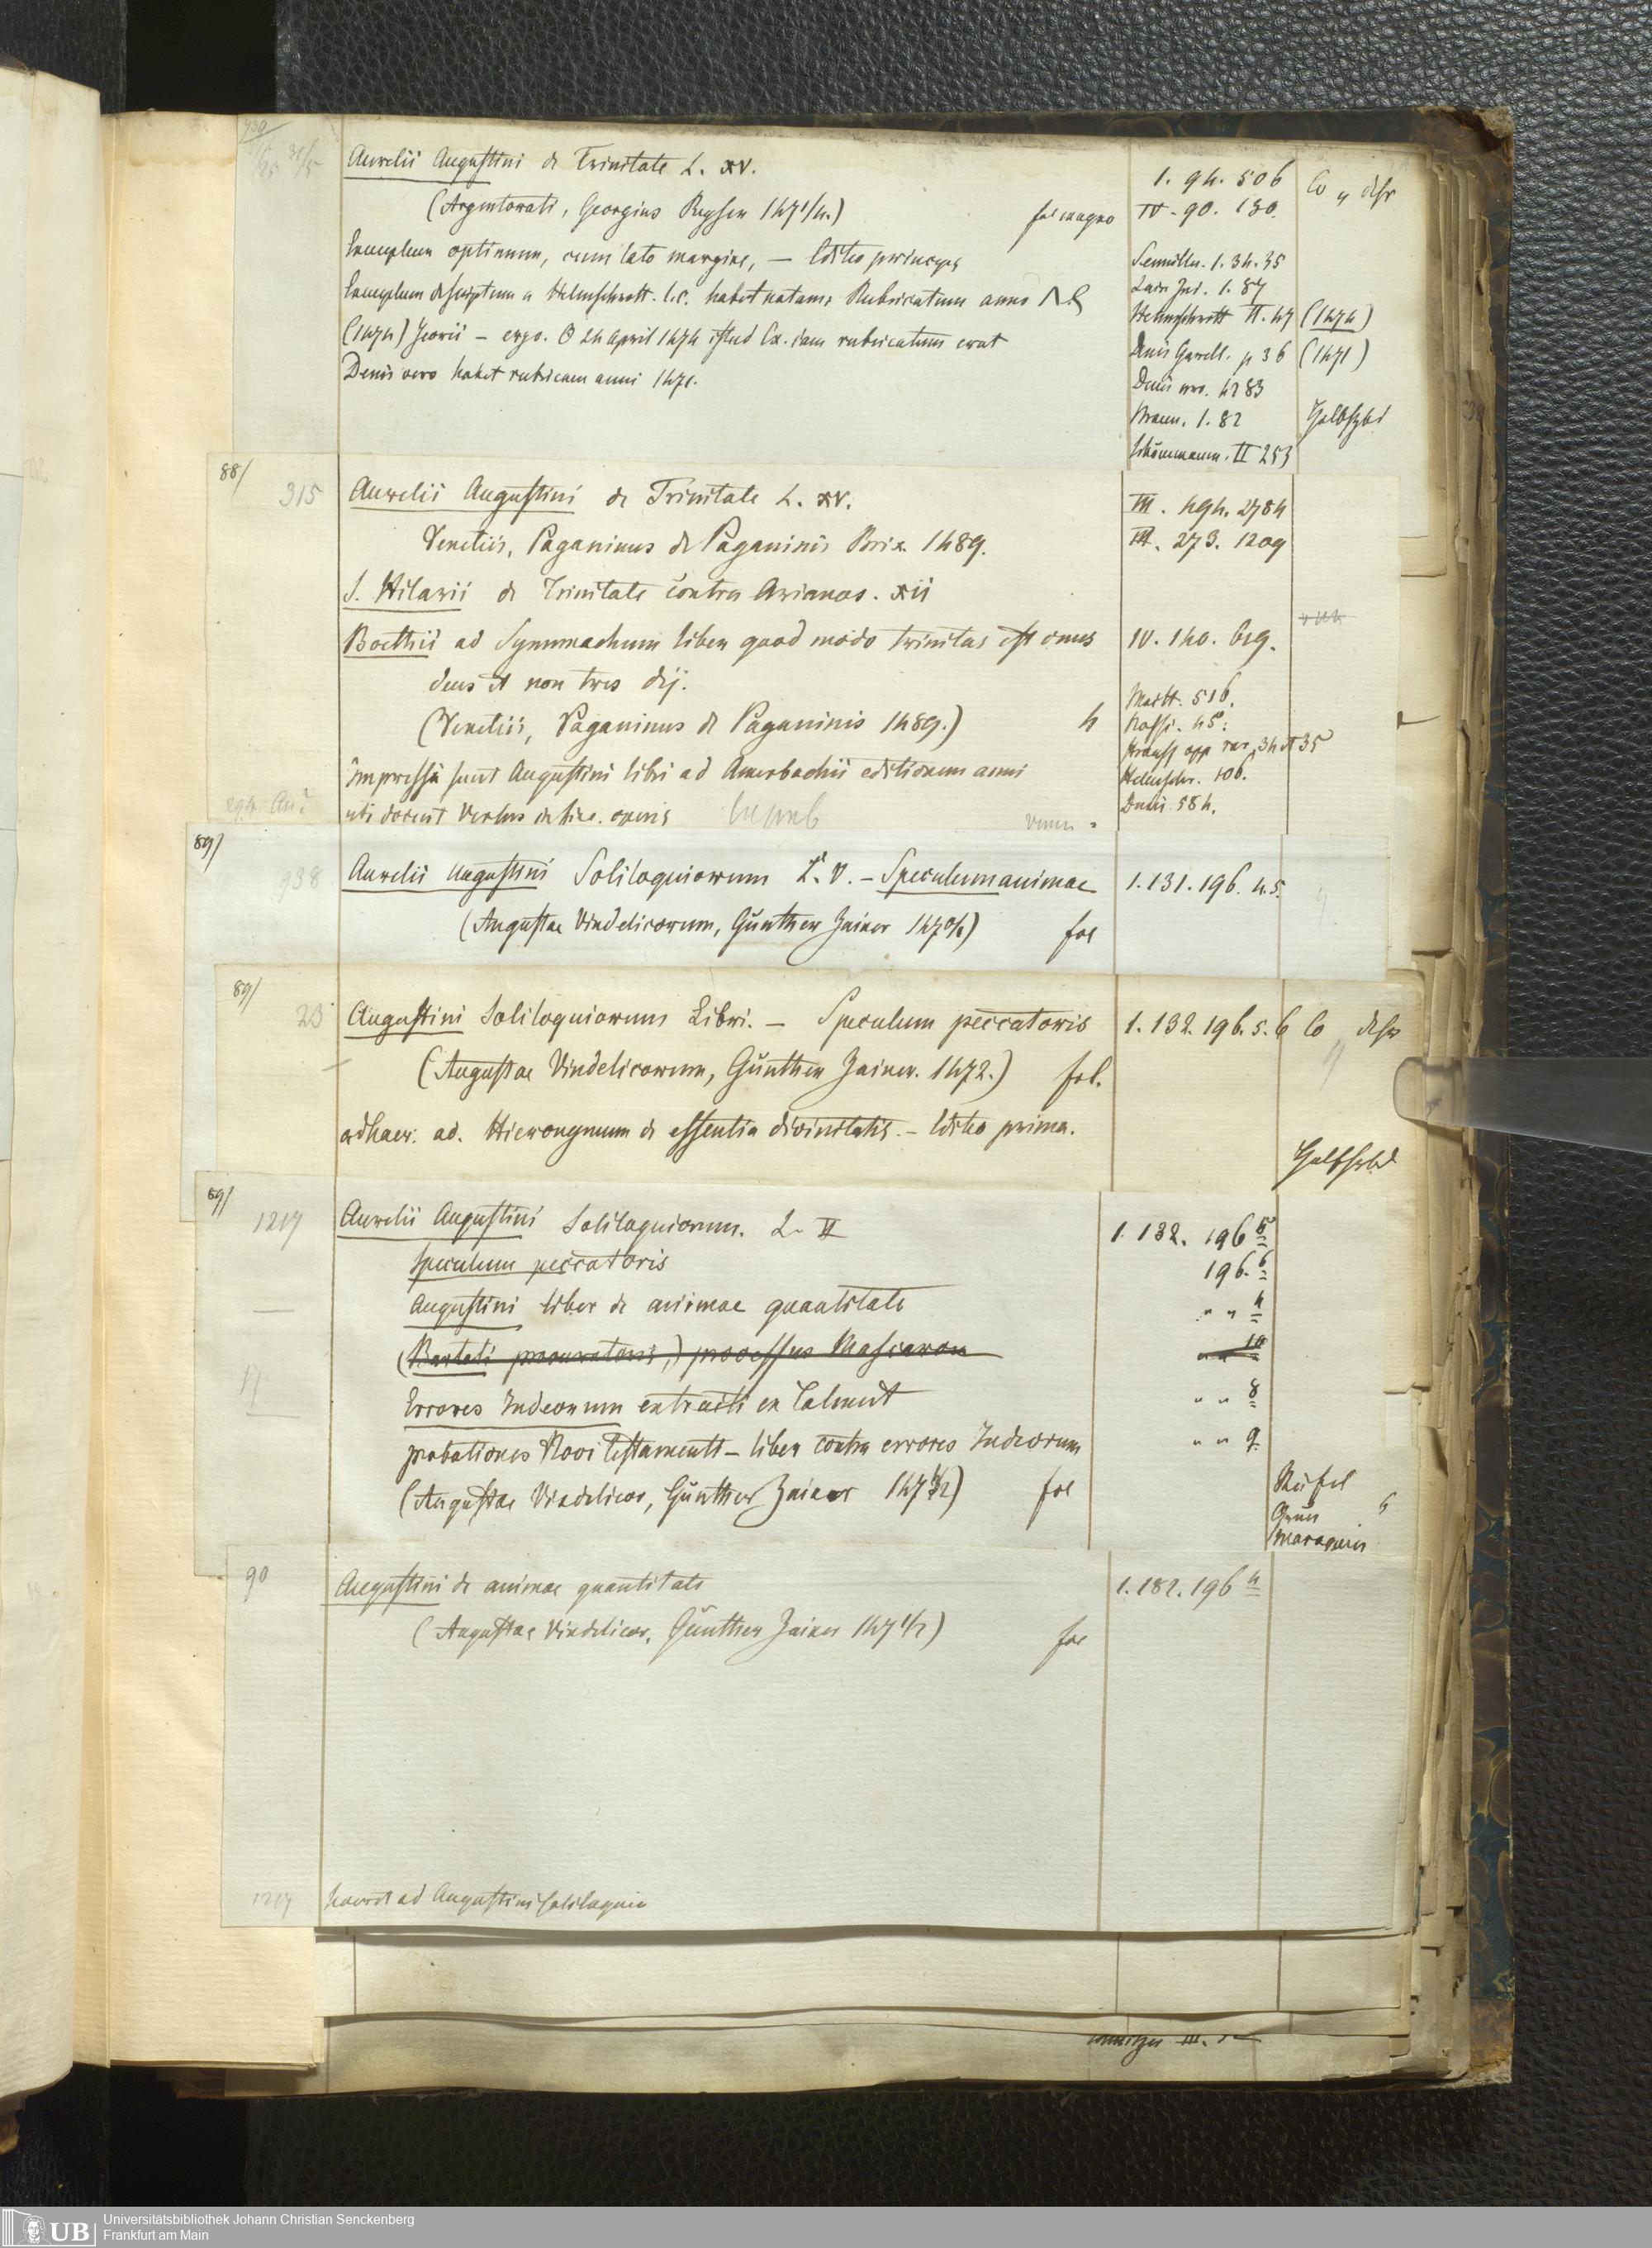 Aurelii Augustini de Trinitate L. XV.
1. 94. 506
Co
(Argentorati, Georgius Reyser 1471/4.)
fol magno
IV. 90. 130.
Exemplum optimum, cum lato margine, — Editio princeps
Semiller. 1. 34. 35
Exemplum descriptum a Helmschrott. l.c. habet notam, Rubricatum anno
Laire Ind. 1. 87
Helmschrott II. 47 (1474)
(1474) Jeorii — ergo 24 April 1474 istud Ex. iam rubricatum erat
Denis Garell. p 36 (1471)
Denis vero habet rubricam anni 1471.
Denis nro. 4283
Braun. 1. 82
Halbfzbd
Schönemann. II 253
88/
315
Aurelii Augustini de Trinitate L. XV.
III. 494. 2784
Venetiis, Paganinus de Paganinis Brix. 1489.
III. 273. 1209
S. Hilarii de Trinitate contra Arianos. XII
Boethii ad Symmachum liber quod modo trinitas est onus
IV. 140. 619.
deus et non tres dij.
Maitt. 516.
(Venetiis, Paganinus de Paganinis 1489.)
4
Rossi. 45.
Impressi sunt Augustini libri ad Amerbachii editionem anni
Helmschr. 106.
uti docent Versus in fine operis
Denis 584.
89/
938
Aurelii Augustini Soliloquiorum L. V. — Speculum animae
1. 131. 196. 4.5.
(Augustae Vindelicorum, Günther Zainer 1470/1)
fol
89/
23
Augustini Soliloquiorum Libri. — Speculum peccatoris
1. 132. 196. 5. 6
Co
(Augustae Vindelicorum, Günther Zainer. 1472.)
fol.
adhaer. ad. Hieronymum de essentia divinitatis. — Editio prima.
Halbfrbd
89/
1217
Aurelii Augustini Soliloquiorum. L. II
1. 132. 196 5
Speculum peccatoris
196. 6
Augustini liber de animae quantitate
" " 4
(Bartoli procuratoris,) processus Mascaron
" " 10
Errores Iudeorum extracti ex Talmut
" " 8
probationes Novi Testamenti — liber contra errores Iudeorum
" " 9
(Augustae Vindelicor, Günther Zainer 1471/2)
fol
90
Augustini de animae quantitate
1. 132. 196 4
(Augustae Vindelicor, Günther Zainer 1471/2)
fol
1217
haeret ad Augustini Soliloquia
UB
Universitätsbibliothek Johann Christian Senckenberg
Frankfurt am Main